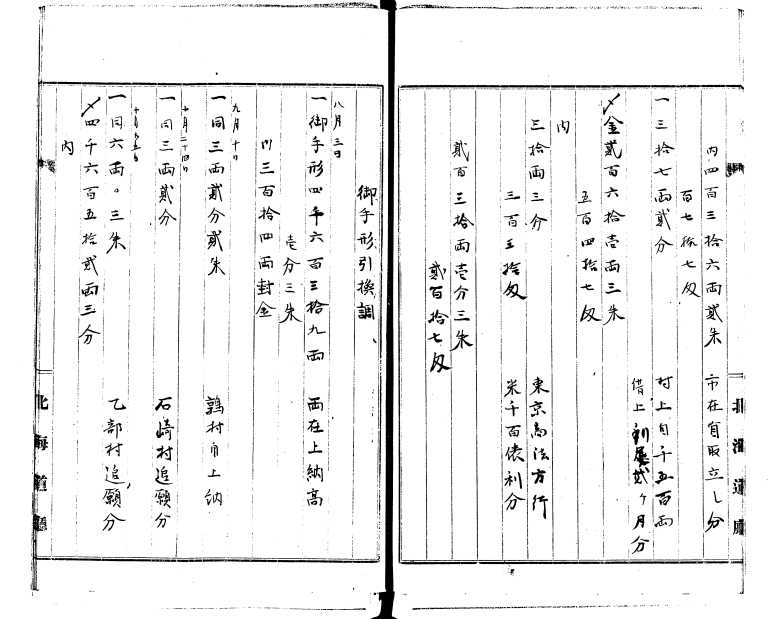 内四百三拾六両貳朱 市在自取立し分
百七拾七匁
一三拾七両貳分 村上自千五百両
借上利足貳ヶ月分
〆金貳百六拾壱両三朱
五百四拾七匁
内
三拾両三分 東京為法方行
三百三拾匁 米千百俵利分
貳百三拾両壱分三朱
貳百拾七匁
北海道廳
御手形引換調
八月三日
一御手形四千六百三拾九両 両在上納高
壱分三朱
内三百拾四両封金
九月十日
一同三両貳分貳朱 鶉村市上納
十月二十四日
一同三両貳分 石崎村追願分
一同六両。三朱 乙部村追願分
〆四千六百五拾貳両三分
内
北海道廳